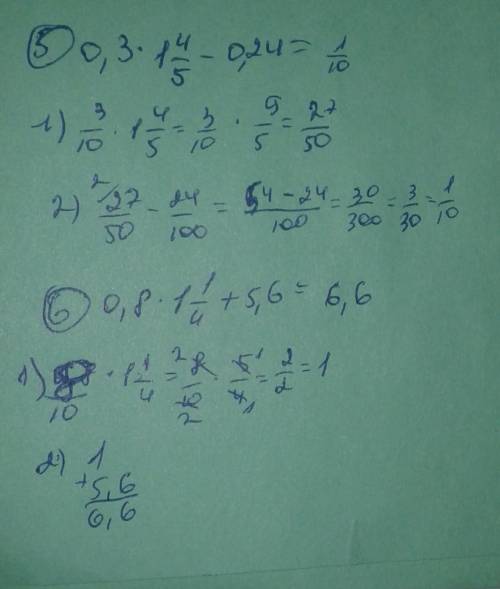 ⑤ 0,3 · 1 4/5 - 0,24 = 1/10
1) 3/10 · 1 4/5 = 3/10 · 9/5 = 27/50
2) ²/27/50 - 24/100 = 54 - 24/100 = 30/300 = 3/30 = 1/10
⑥ 0,8 · 1 1/4 + 5,6 = 6,6
1) 8/10 · 1 1/4 = ²8/10 2 · 5¹/4 1 = 2/2 = 1
2) 1
+5,6
6,6